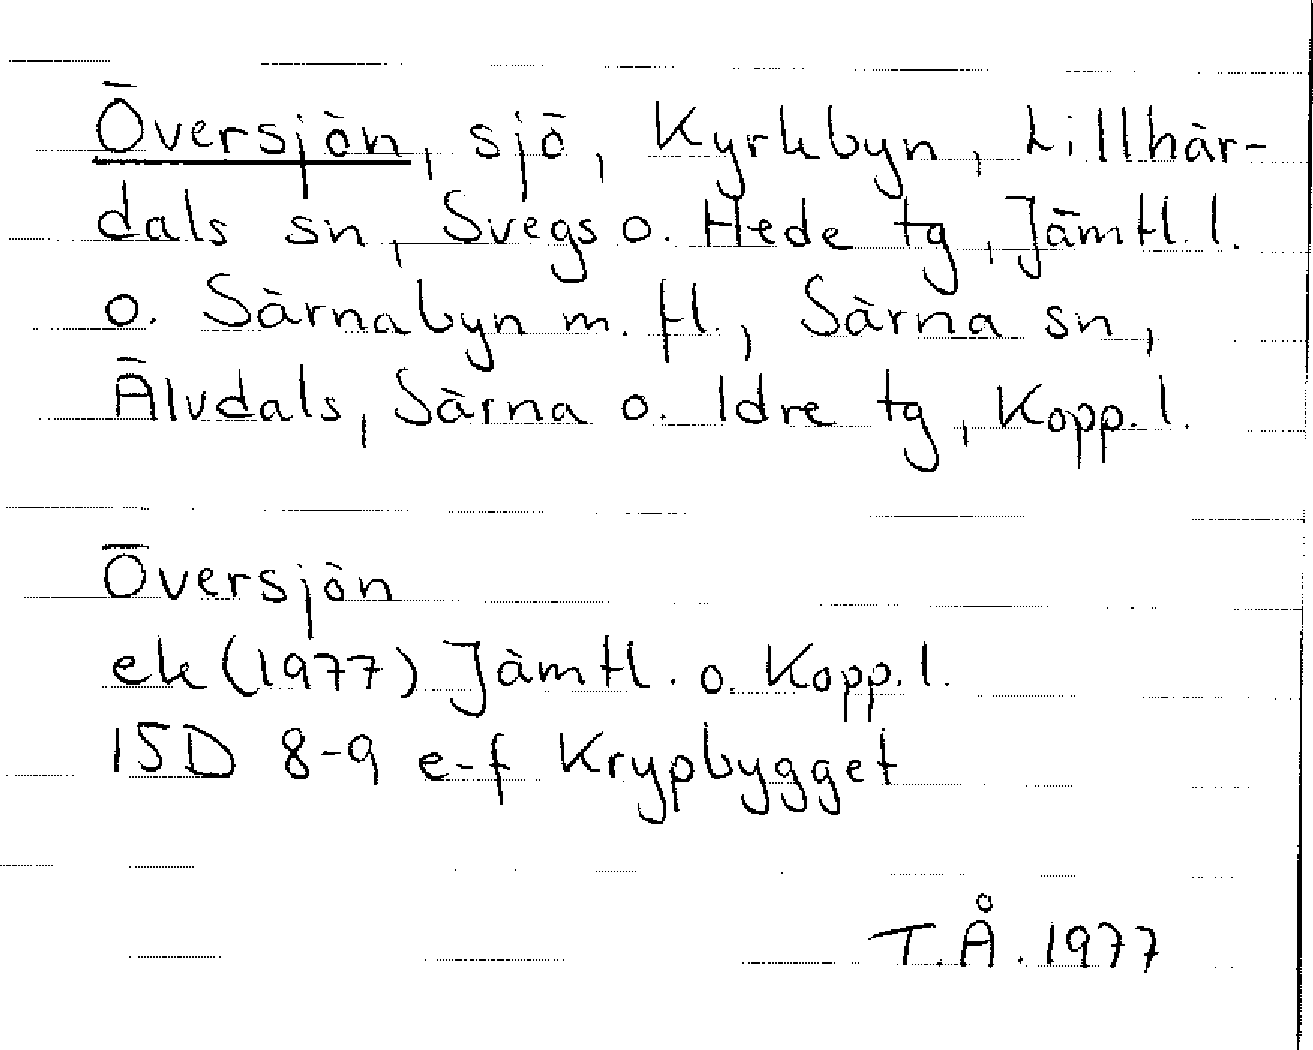 Översjön, sjö, Kyrkbyn, Lillhär-
dals sn, Svegs o. Hede tg, Jämtl. l.
o. Särnabyn m. fl., Särna sn,
Älvdals, Särna o. Idre tg, Kopp. l.
Översjön
ek (1977) Jämtl. o. Kopp. l.
15D 8-9 e-f Krypbygget
T.Å. 1977